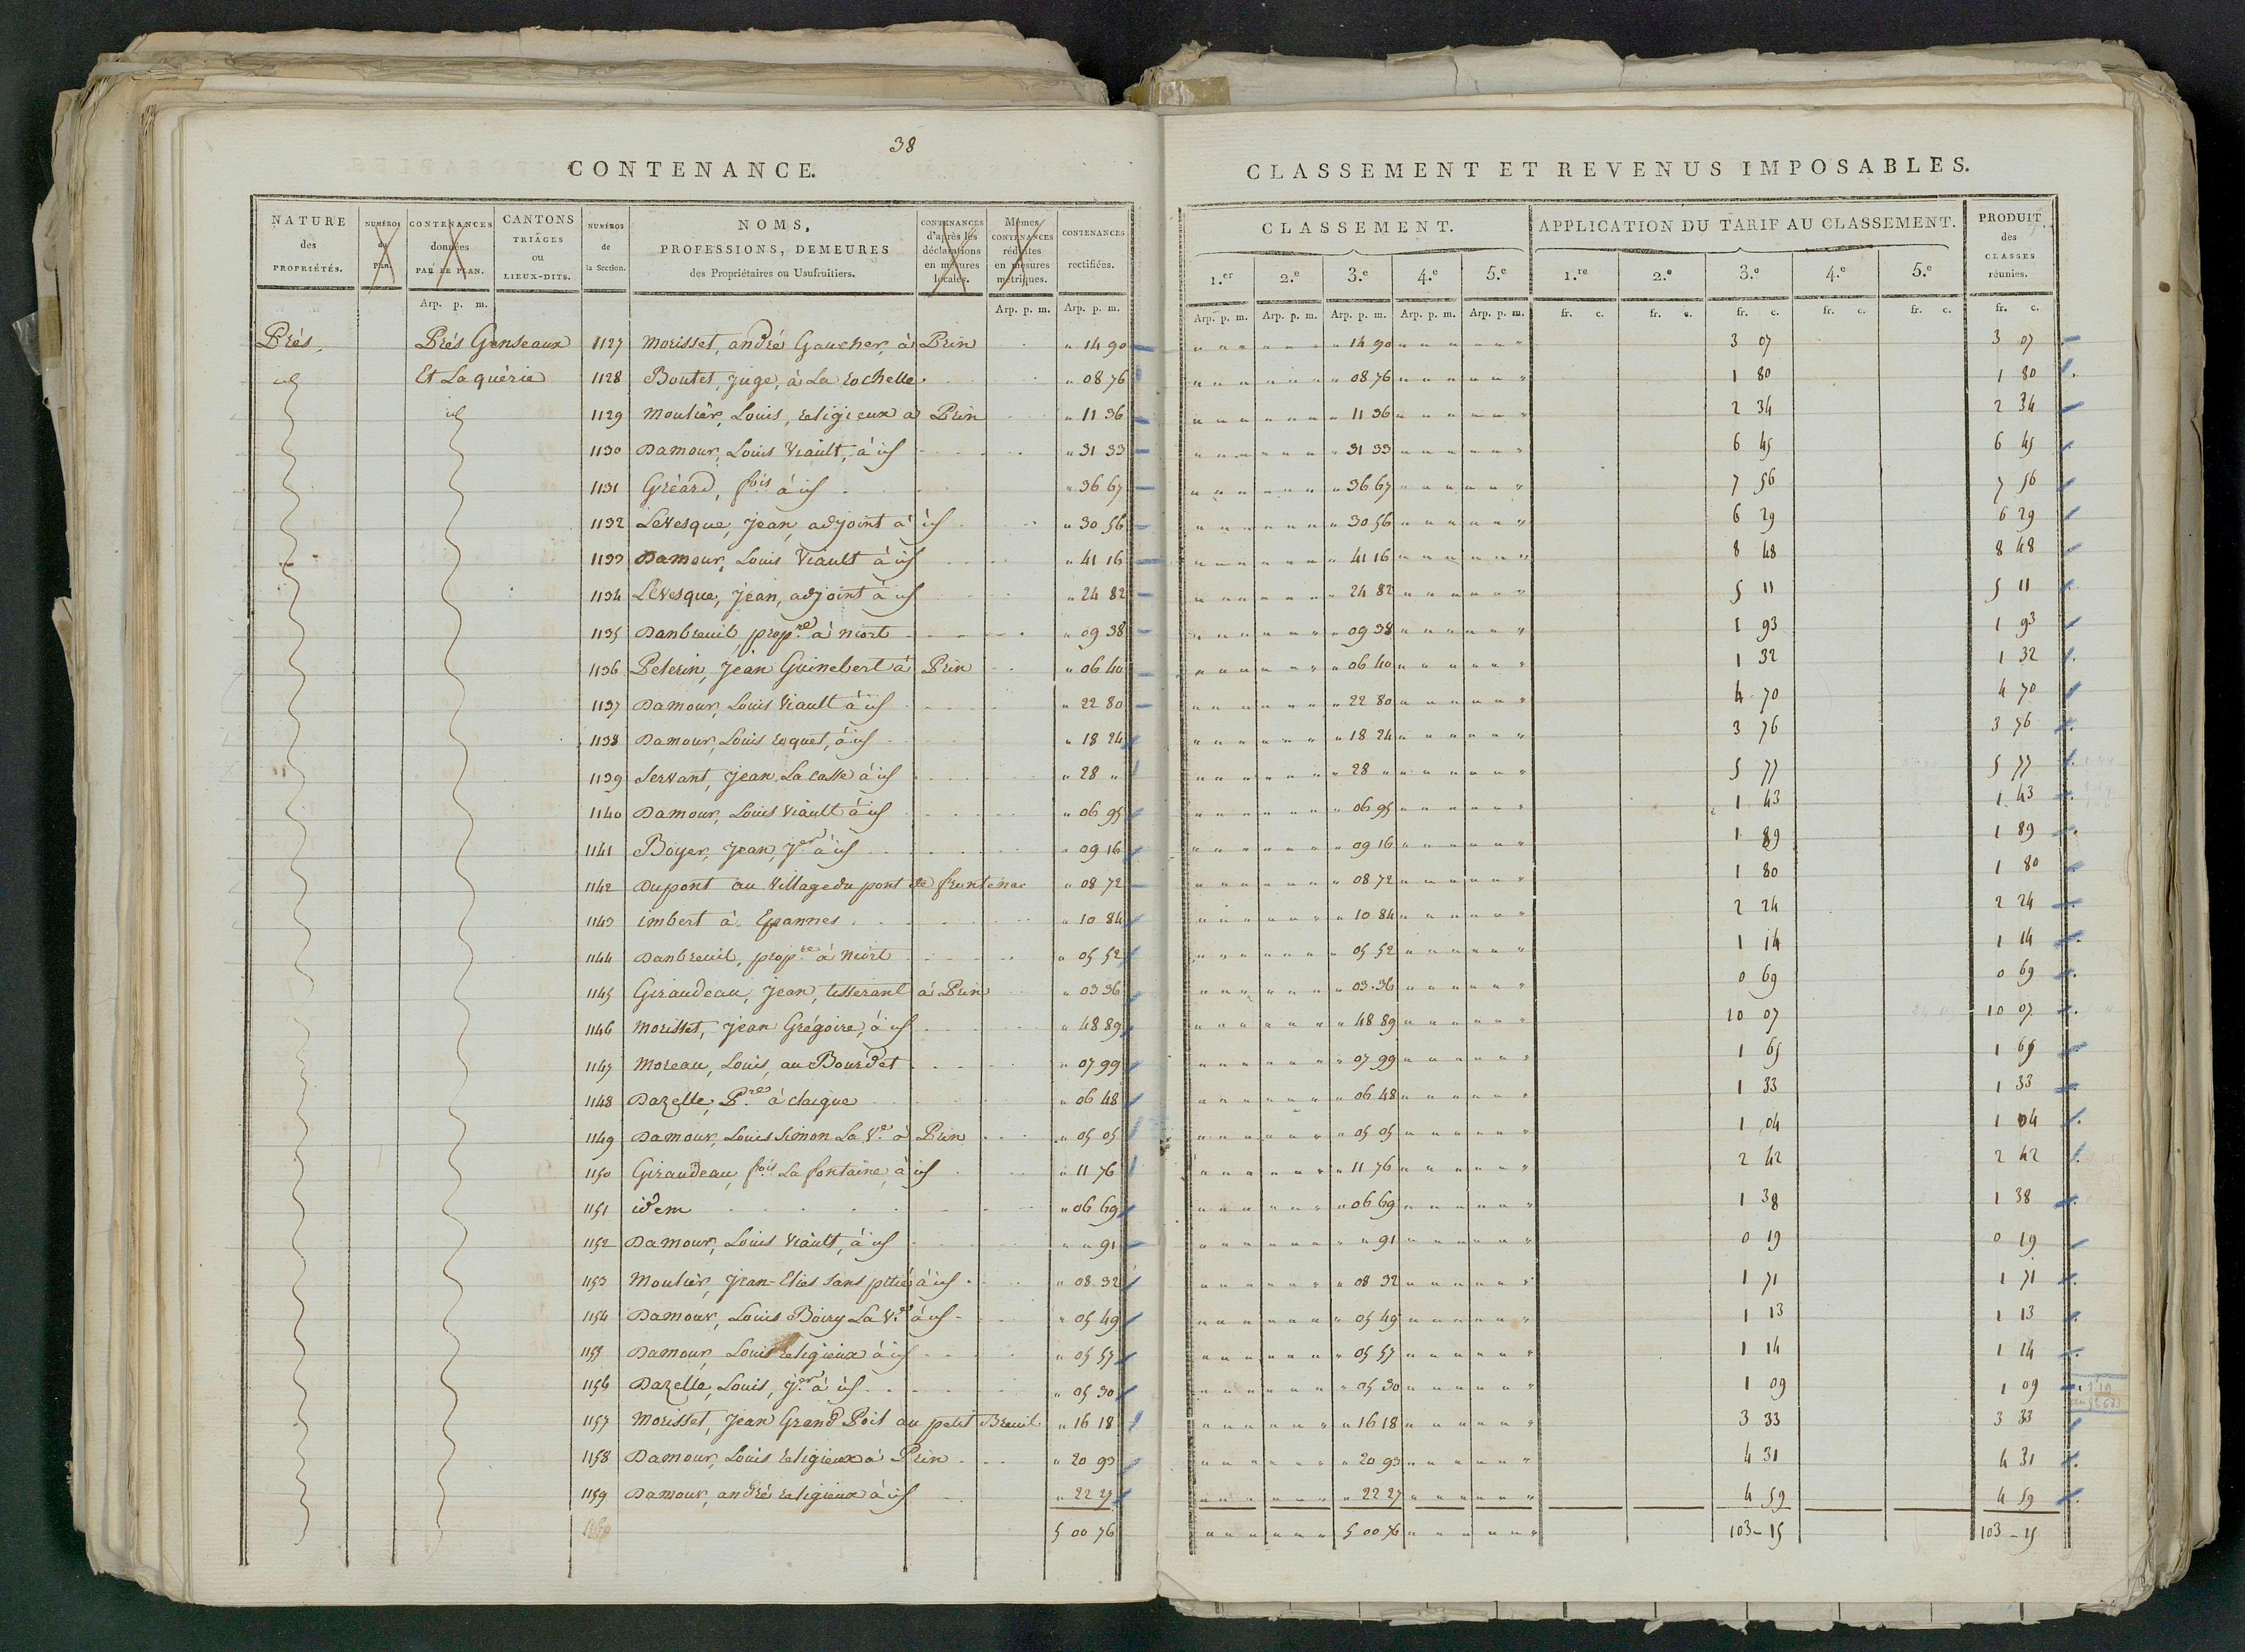 38
CONTENANCE.
NATURE des PROPRIÉTÉS. NUMÉROS du Plan. CONTENANCES données PAR LE PLAN. CANTONS TRIAGES ou LIEUX-DITS. NUMÉROS de la Section. NOMS, PROFESSIONS, DEMEURES des Propriétaires ou Usufruitiers. CONTENANCES d'après les déclarations en mesures locales. Mêmes CONTENANCES réduites en mesures métriques. CONTENANCES rectifiées.
Arp. p. m. Arp. p. m. Arp. p. m.
Prés. Prés Genseaux 1127 Morisset, andré Gaucher, à Prin " 14 90
id Et Laquérie 1128 Boutet, Juge, à La Rochelle " 08 76
id 1129 Moulier, Louis, religieux à Prin " 11 36
1130 Damour, Louis Viault, à id " 31 33
1131 Gréard, fois à id " 36 67
1132 Levesque, Jean, adjoint à id " 30 56
1133 Damour, Louis Viault à id " 41 16
1134 Lévesque, Jean, adjoint à id " 24 82
1135 Danbreuil, propre à niort " 09 38
1136 Pelerin, Jean Guinebert à Prin " 06 40
1137 Damour, Louis Viault à id " 22 80
1138 Damour, Louis Roquet, à id " 18 24
1139 Servant, Jean La Casse à id " 28 "
1140 Damour, Louis Viault à id " 06 95
1141 Boyer, Jean, Jer à id " 09 16
1142 Dupont au Village du pont de frontenac " 08 72
1143 imbert à Epannes " 10 84
1144 Danbreuil, propre à Niort " 05 52
1145 Giraudeau, Jean, tisserant à Prin " 03 36
1146 Morisset, Jean Grégoire, à id " 48 89
1147 Moreau, Louis, au Bourdet " 07 99
1148 Dazelle, Pre à claigue " 06 48
1149 Damour, Louis Simon La Ve à Prin " 05 05
1150 Giraudeau, fois La fontaine, à id " 11 76
1151 idem " 06 69
1152 Damour, Louis Viault, à id " " 91
1153 Moulier, Jean-Elies sans pitié à id " 08 32
1154 Damour, Louis Boiry La Ve à id " 05 49
1155 Damour, Louis religieux à id " 05 57
1156 Dazelle, Louis, Jer à id " 05 30
1157 Morisset, Jean Grand Poil au petit Breuil " 16 18
1158 Damour, Louis religieux à Prin " 20 93
1159 Damour, andré religieux à id " 22 27
1160 5 00 76
CLASSEMENT ET REVENUS IMPOSABLES.
CLASSEMENT. APPLICATION DU TARIF AU CLASSEMENT. PRODUIT des CLASSES réunies.
1.er 2.e 3.e 4.e 5.e 1.re 2.e 3.e 4.e 5.e
Arp. p. m. Arp. p. m. Arp. p. m. Arp. p. m. Arp. p. m. fr. c. fr. c. fr. c. fr. c. fr. c. fr. c.
" 14 90 3 07 3 07
" 08 76 1 80 1 80
" 11 36 2 34 2 34
" 31 33 6 45 6 45
" 36 67 7 56 7 56
" 30 56 6 29 6 29
" 41 16 8 48 8 48
" 24 82 5 11 5 11
" 09 38 1 93 1 93
" 06 40 1 32 1 32
" 22 80 4 70 4 70
" 18 24 3 76 3 76
" 28 " 5 77 5 77
" 06 95 1 43 1 43
" 09 16 1 89 1 89
" 08 72 1 80 1 80
" 10 84 2 24 2 24
" 05 52 1 14 1 14
" 03 36 0 69 0 69
" 48 89 10 07 10 07
" 07 99 1 65 1 65
" 06 48 1 33 1 33
" 05 05 1 04 1 04
" 11 76 2 42 2 42
" 06 69 1 38 1 38
" " 91 0 19 0 19
" 08 32 1 71 1 71
" 05 49 1 13 1 13
" 05 57 1 14 1 14
" 05 30 1 09 1 09
" 16 18 3 33 3 33
" 20 93 4 31 4 31
" 22 27 4 59 4 59
5 00 76 103 - 15 103 - 15